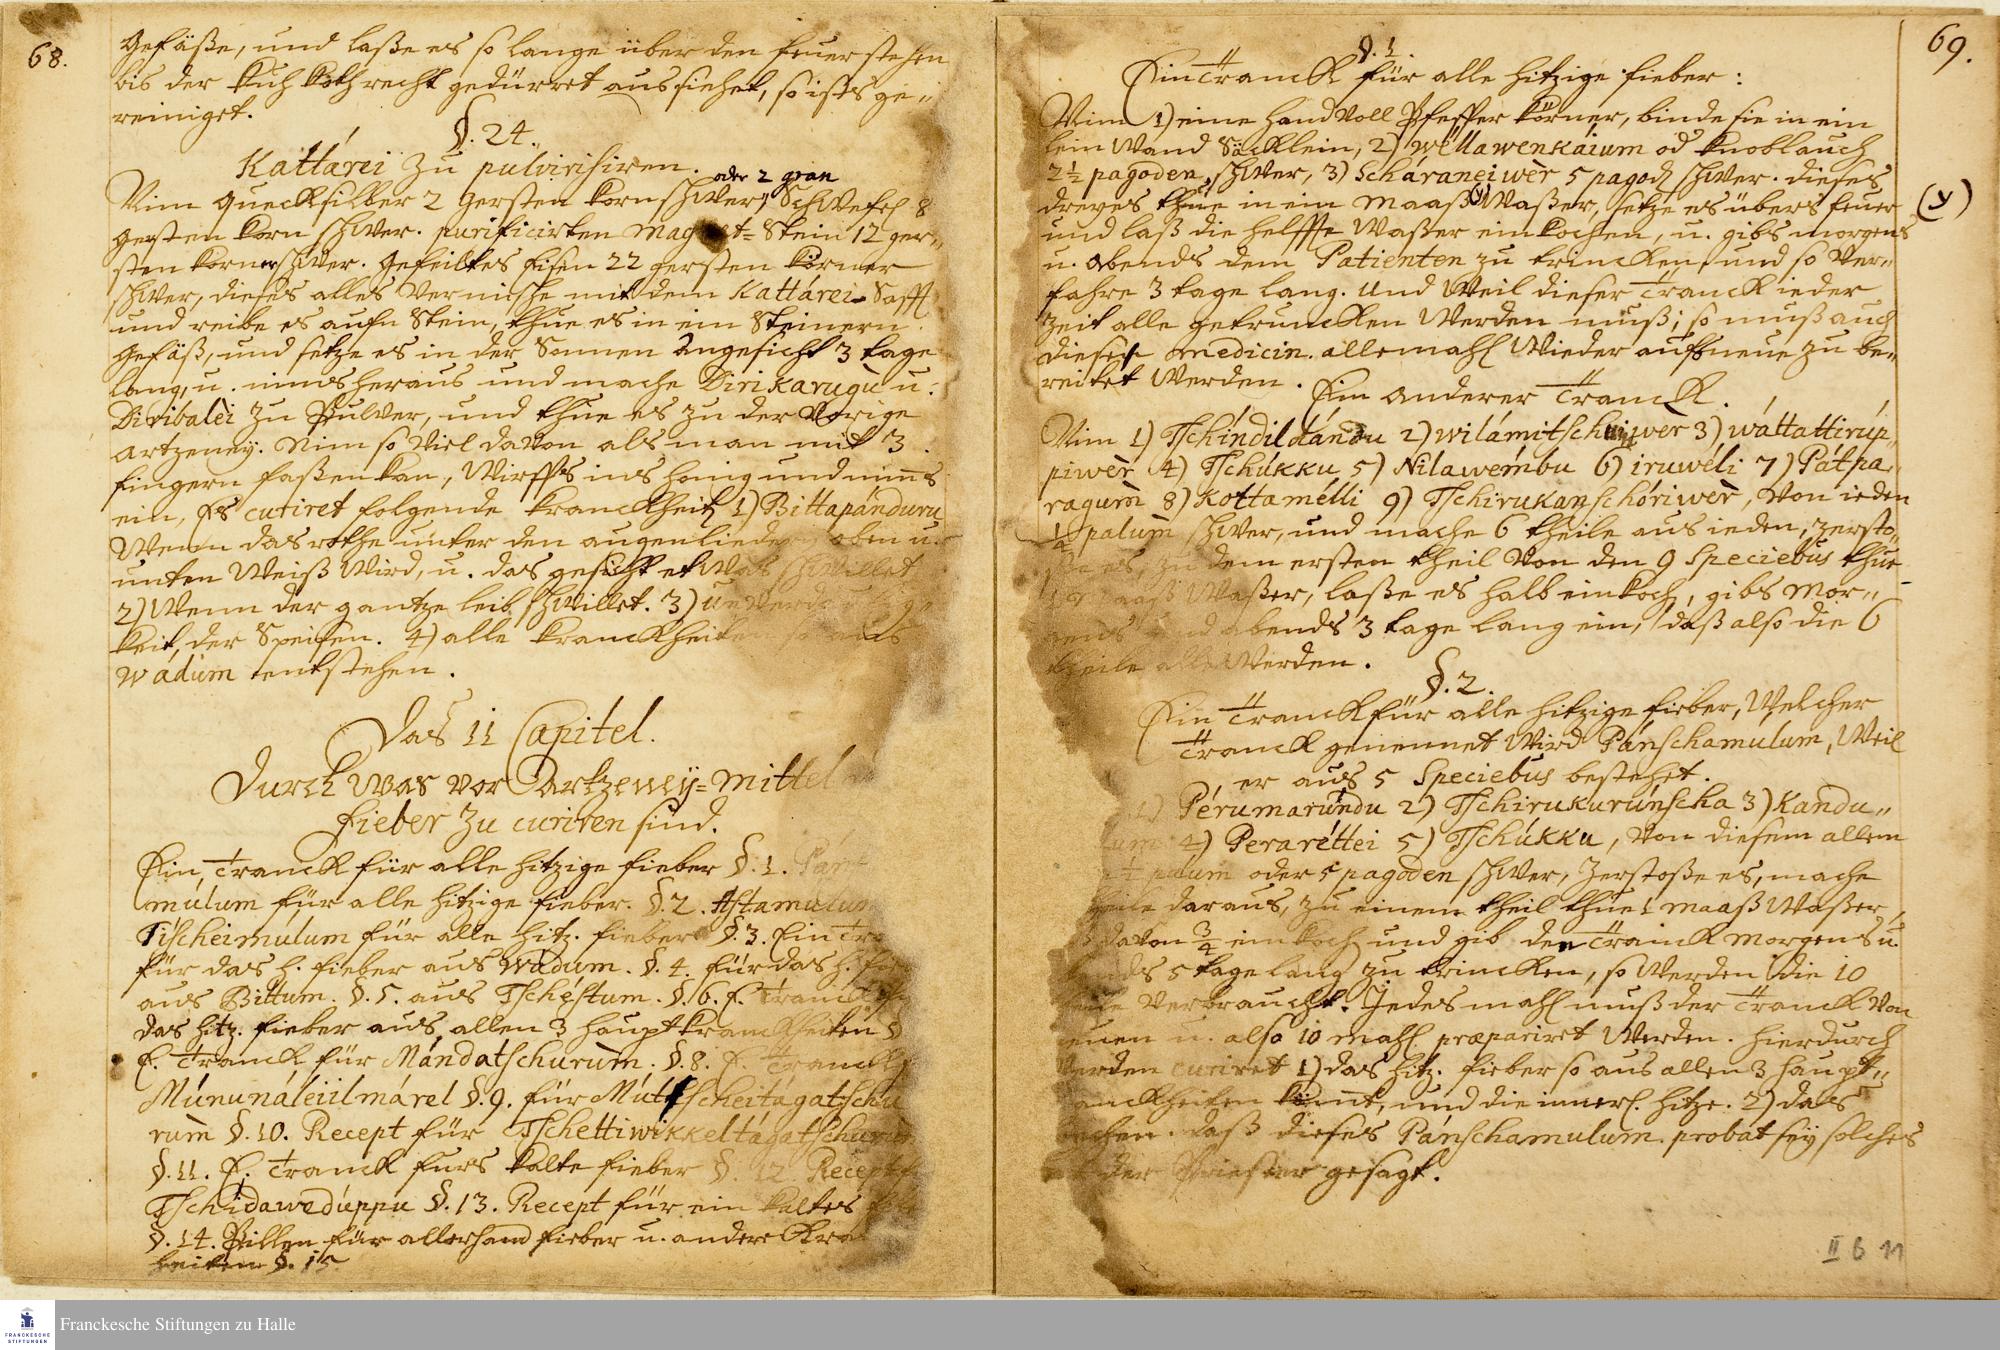 68.
Gefäße, und laße es so lange über den feuer stehen
bis der Kuh Koth recht gedürret aus siehet, so ists ge-
reiniget.
§. 24.
Kattárei zu pulvirisiren.
oder 2 gran
Nim Quecksilber 2 Gersten Korn schwer, Schwefel 8
gersten Korn schwer. purificirten Magnet-Stein 12 ger-
sten Korner schwer. Gefeiltes Eisen 22 gersten Körner
schwer, dieses alles vermische mit dem Kattárei-Safft
und reibe es aufn Stein, thue es in ein Steinern
Gefäß, und setze es in der Sonnen Angesicht 3 tage
lang, u. nims heraus und mache Dirikarugù u.
Diribalèi zu Pulver, und thue es zu der Vorige
Artzeney. Nim so viel davon als man mit 3
fingern faßen kan, Wirffs ins honig und nims
ein, Es curiret folgende Kranckheit 1) Bittapánduru
Wenn das rothe unter den augenliedern oben u.
unten Weiß Wird, u. das gesicht etwas schwillet
2) Wenn der gantze leib schwillet. 3)
keit, der Speisen. 4) alle Kranckheiten so aus
Wádum entstehen.
Das 11 Capitel.
Durch was vor Artzeney-Mittel
Fieber zu curiren sind.
Ein Tranck für alle hitzige fieber §. 1.
mulum für alle hitzige fieber. §. 2. Astamulum
Tischeimulum für alle hitz. fieber §. 3. Ein
für das h. fieber aus Wádum. §. 4. für das h.
aus Bittum. §. 5. aus Tschéstum. §. 6. E. Tranck
das hitz. fieber aus allen 3 hauptkranckheiten §
E. Tranck für Mándatschurùm. §. 8. E. Tranck
Múnunáleiilmárel §. 9. für Mútscheitágatschu
rum §. 10. Recept für Tschettiwikkeltágatschurum
§. 11. E. Tranck furs kalte fieber §. 12 Recept
Tschidawedúppu §. 13. Recept für ein kaltes
§. 14. Pillen für allerhand fieber u. andere Kra
heiten §. 15
69.
§. 1.
Ein Tranck für alle hitzige fieber:
Nim 1) eine Hand voll Pfeffer Körner, binde sie in ein
lein Wand Säcklein, 2) wéllawenkáium od Knoblauch
2½ pagoden schwer, 3) Scháraneiwèr 5 pagod schwer. dieses
dreyes thue in ein Maaß (y) Waßer, setze es übers feuer
(y)
und laß die helffte Waßer einkochen, u. gibs morgens
u. Abends dem Patienten zu trincken, und so ver-
fahre 3 tage lang. Und Weil dieser Tranck ieder
Zeit alle getruncken Werden muß; so muß auch
diese medicin. allemahl Wieder aufs neue zu be-
reitet Werden.
Ein anderer Tranck.
Nim 1) Tschíndildándu 2) wilámitschiwer 3) wáttattirúp-
piwèr 4) Tschúkku 5) Nilawémbu 6) iruwéli 7) Pátpa-
ragum 8) Kottamélli 9) Tschirukanschóriwèr, Von ieden
¼ palum schwer, und mache 6 theile aus ieden, zersto-
es, zu dem ersten theil Von den 9 Speciebus thue
Maaß Waßer, laße es halb einkoch, gibs Mor-
gens und abends 3 tage lang ein, daß also die 6
theile alle Werden.
§. 2.
Ein Tranck für alle hitzige fieber, Welcher
Tranck genennet Wird Pánschamulum, Weil
er aus 5 Speciebus bestehet.
1) Pérumarúndu 2) Tschirukurúnscha 3) Kandu-
um 4) Peraréttei 5) Tschúkku, Von diesem allem
palum oder 5 pagoden schwer, Zerstoße es, mache
theile daraus, zu einem theil thue 1 Maaß Waßer,
davon ¾ einkoch und gib den Tranck morgens u.
5 tage lang zu trincken, so Werden die 10
verbraucht. Jedes mahl muß der Tranck Von
neuen u. also 10 mahl præpariret Werden. Hierdurch
Werden curiret 1) das hitz. fieber so aus allen 3 haupt-
kranckheiten kömt, und die innerl. hitze. 2) das
daß dieses Pánschamulum probat sey solches
der Priester gesagt.
II B 11
Franckesche Stiftungen zu Halle
FRANCKESCHE
STIFTUNGEN